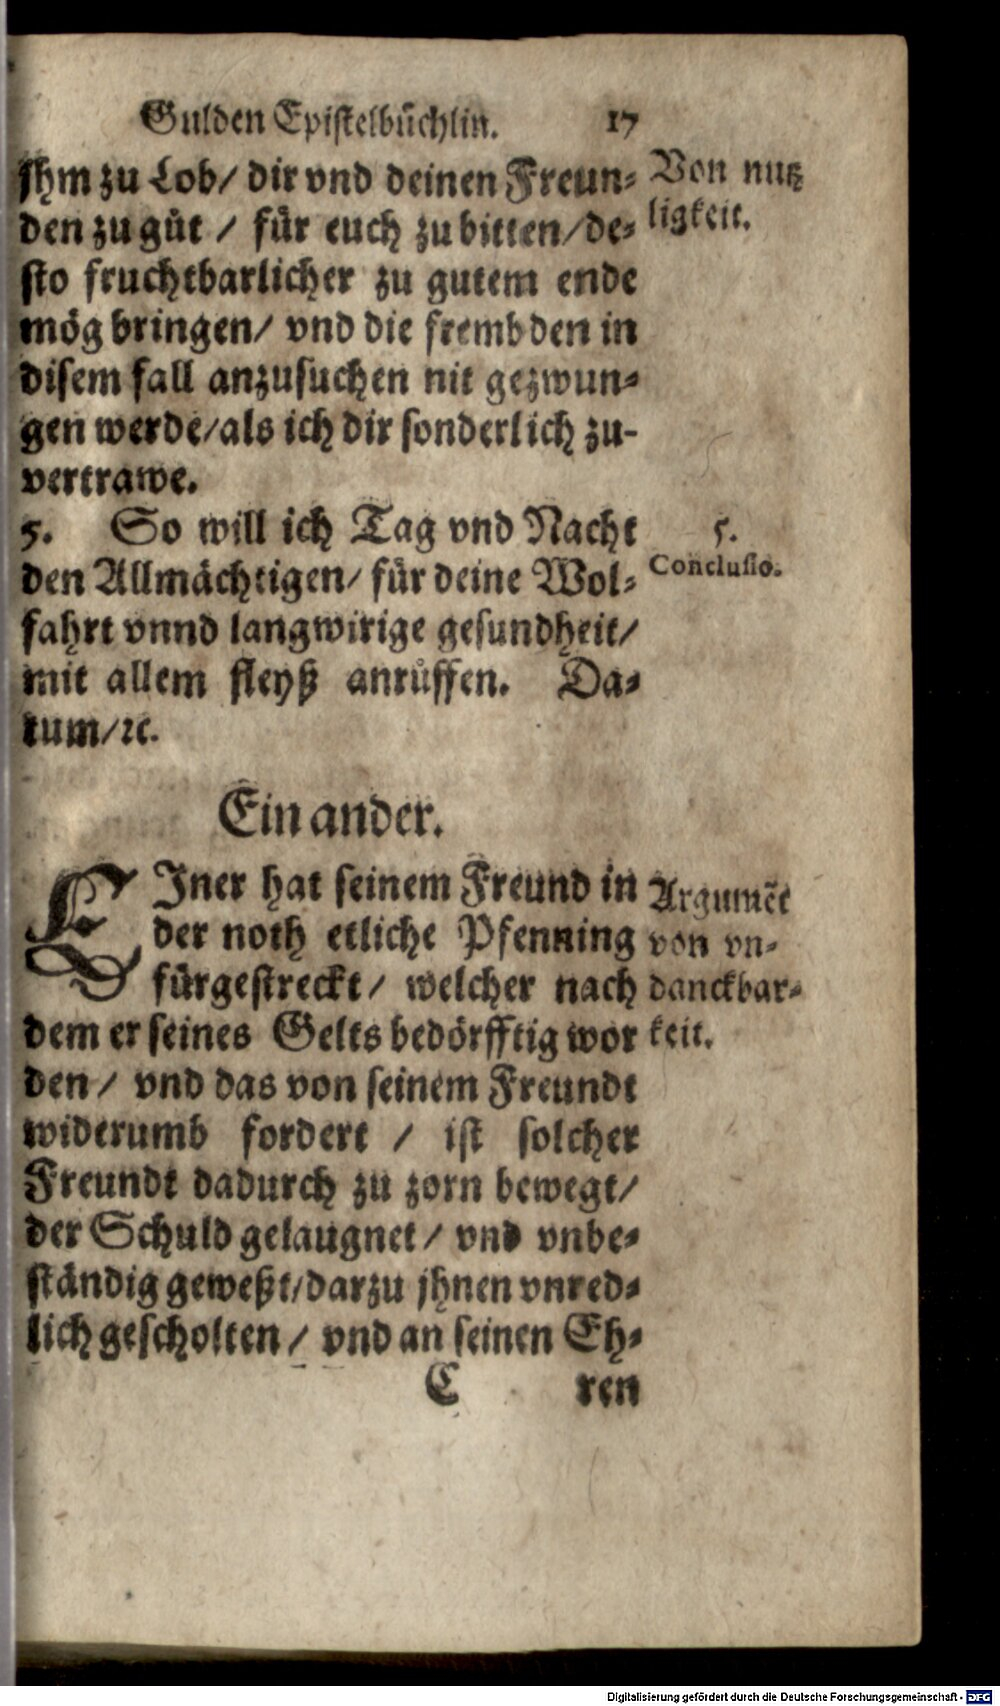 Gulden Epistelbüchlin. 17
jhm zu Lob/ dir vnd deinen Freun-
den zu gůt / für euch zu bitten/de-
sto fruchtbarlicher zu gutem ende
mög bringen/ vnd die frembden in
disem fall anzusuchen nit gezwun-
gen werde/als ich dir sonderlich zu-
vertrawe.
Von nutz
ligkeit.
5. So will ich Tag vnd Nacht
den Allmächtigen/ für deine Wol-
fahrt vnnd langwirige gesundheit/
mit allem fleyß anrůffen. Da-
tum/ꝛc.
5.
Conclusio.
Ein ander.
EJner hat seinem Freund in
der noth etliche Pfenning
fürgestreckt/ welcher nach
dem er seines Gelts bedörfftig wor
den/ vnd das von seinem Freundt
widerumb fordert / ist solcher
Freundt dadurch zu zorn bewegt/
der Schuld gelaugnet/ vnd vnbe-
ständig geweßt/darzu jhnen vnred-
lich gescholten/ vnd an seinen Eh-
Argumēt
von vn-
danckbar-
keit.
C ren
Digitalisierung gefördert durch die Deutsche Forschungsgemeinschaft - DFG